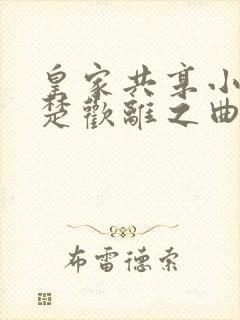 皇家共享小
楚歡離之曲
布雷德索